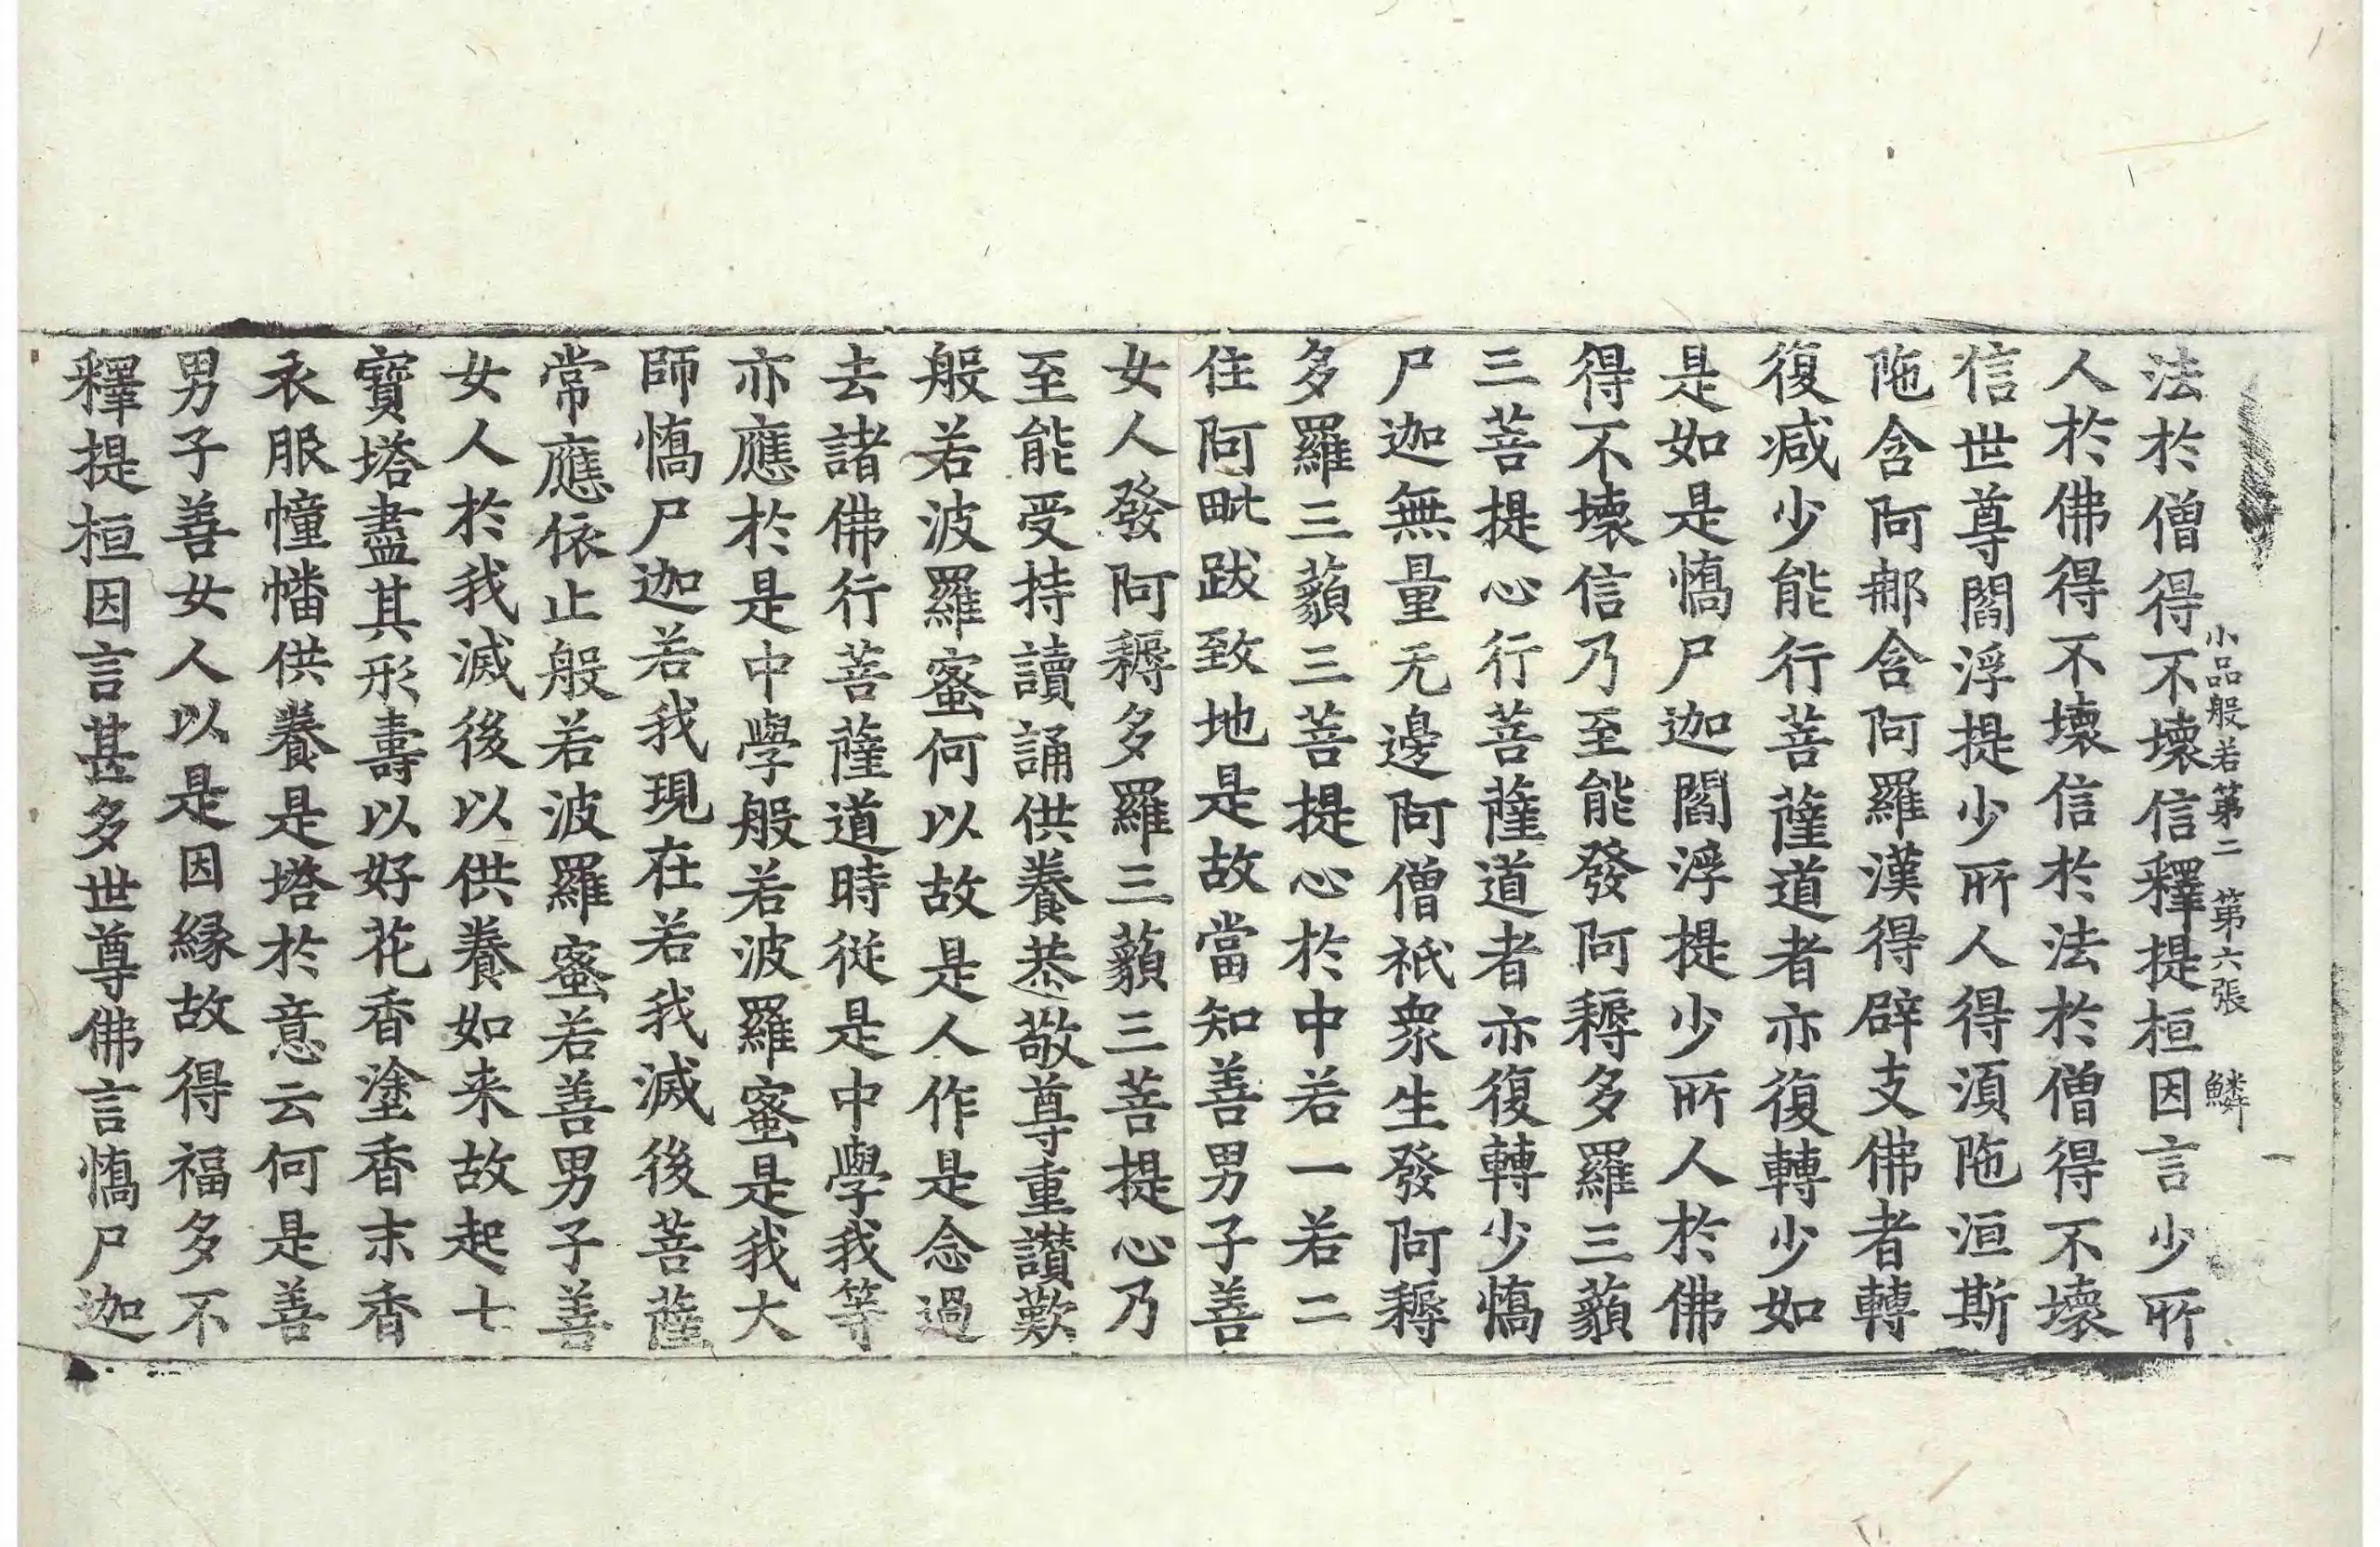 小品般若第二 第六張 鱗
法於僧得不壞信釋提桓因言少所
人於佛得不壞信於法於僧得不壞
信世尊閻浮提少所人得湏陁洹斯
陁含阿那含阿羅漢得辟支佛者轉
復减少能行菩薩道者亦復轉少如
是如是憍尸迦閻浮提少所人於佛
得不壞信乃至能發阿耨多羅三藐
三菩提心行菩薩道者亦復轉少憍
尸迦無量无邊阿僧祇衆生發阿耨
多羅三藐三菩提心於中若一若二
住阿毗跋致地是故當知善男子善
女人發阿耨多羅三藐三菩提心乃
至能受持讀誦供養恭敬尊重讃歎
般若波羅蜜何以故是人作是念過
去諸佛行菩薩道時從是中學我等
亦應於是中學般若波羅蜜是我大
師憍尸迦若我現在若我滅後菩薩
常應依止般若波羅蜜若善男子善
女人於我滅後以供養如来故起七
寶塔盡其形壽以好花香塗香末香
衣服幢幡供養是塔於意云何是善
男子善女人以是因緣故得福多不
釋提桓因言甚多世尊佛言憍尸迦